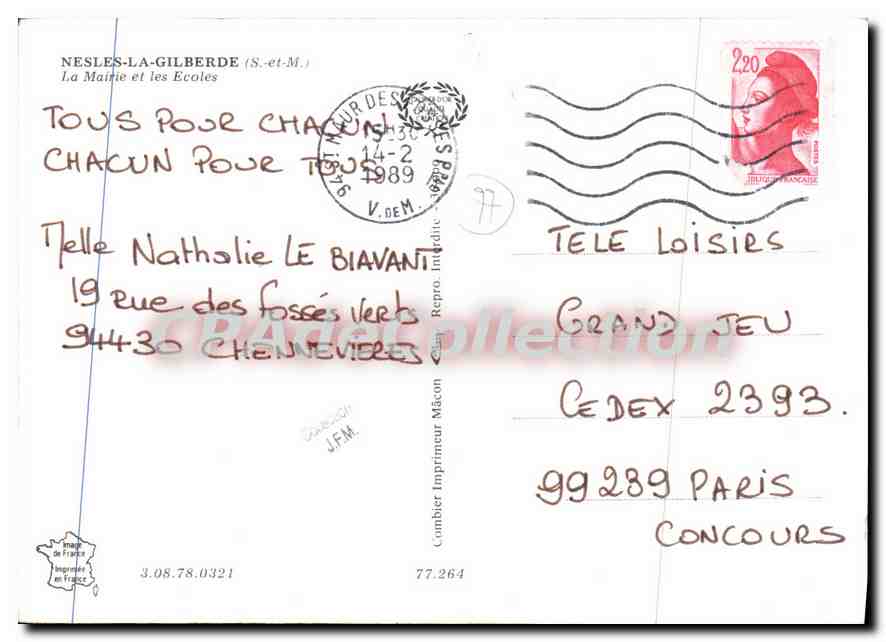 NESLES-LA-GILBERDE (S.-et-M.)
La Mairie et les Ecoles
TOUS POUR CHACUN
CHACUN POUR TOUS
Melle Nathalie LE BIAVANT
19 rue des fossés verts
94430 CHENNEVIERES
94 ST MAUR DES FOSSES PPAL
15H30
14-2
1989
V. DE M.
97
2,20
POSTES
REPUBLIQUE FRANÇAISE
TELE LOISIRS
GRAND JEU
CEDEX 2393.
99239 PARIS
CONCOURS
CPADeCollection
Combier Imprimeur Mâcon
Repro. Interdite
COLLECTION
J.F.M.
Image
de France
Imprimée
en France
3.08.78.0321
77.264